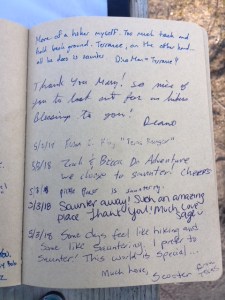 More of a hiker myself. Too much track and
held back ground. Terrance, on the other hand...
all he does is saunter
Dino Man + Terrance?
Thank You Mary! so nice of
you to look out for us hikers
blessing to you!
Deano
5/3/18
5/3/18 Zach & Becca Do Adventure
we chose to saunter! cheers
5/3/18 is sauntering.
5/3/18 Saunter away! Such an amazing
place Thank You! Much Love
Sage
5/3/18 Some days feel like hiking and
some like sauntering. I prefer to
Saunter! This world is special...
Much love, Scooter